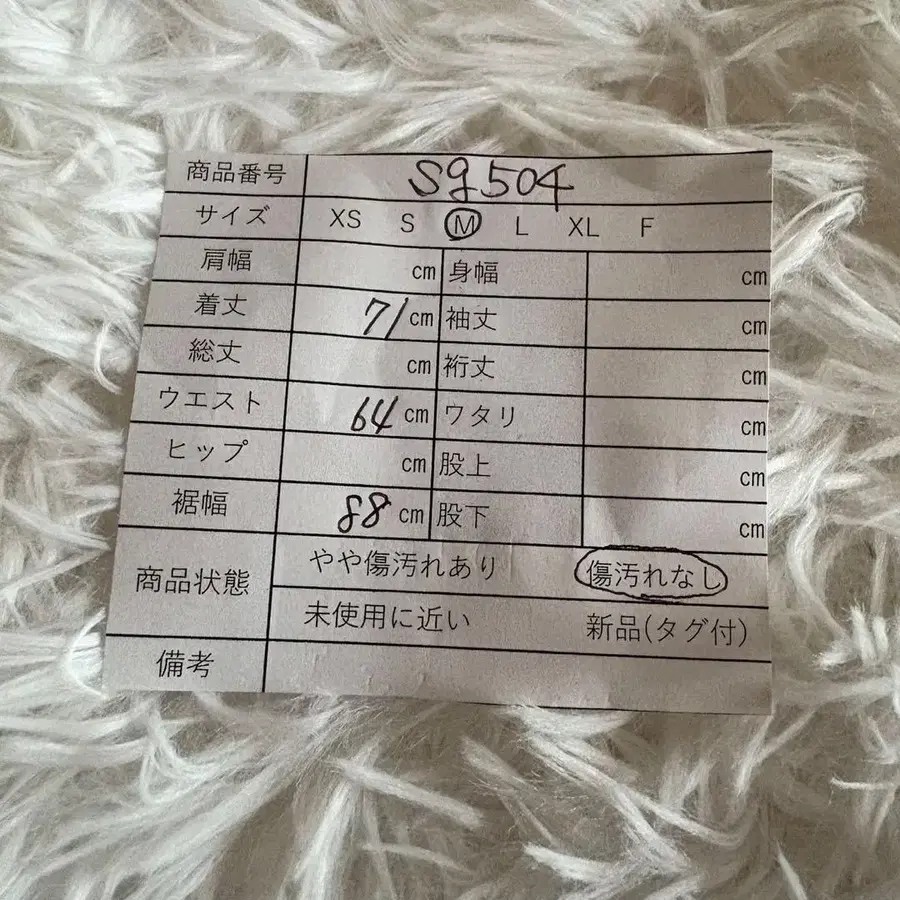 商品番号 sg504
サイズ XS S M L XL F
肩幅 cm 身幅 cm
着丈 71cm 袖丈 cm
総丈 cm 裄丈 cm
ウエスト 64cm ワタリ cm
ヒップ cm 股上 cm
裾幅 88cm 股下 cm
商品状態 やや傷汚れあり 傷汚れなし
未使用に近い 新品(タグ付)
備考